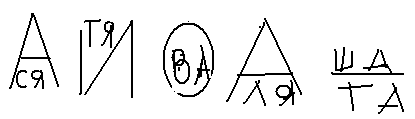 А СЯ И ТЯ О ВА Д ЛЯ ША ТА